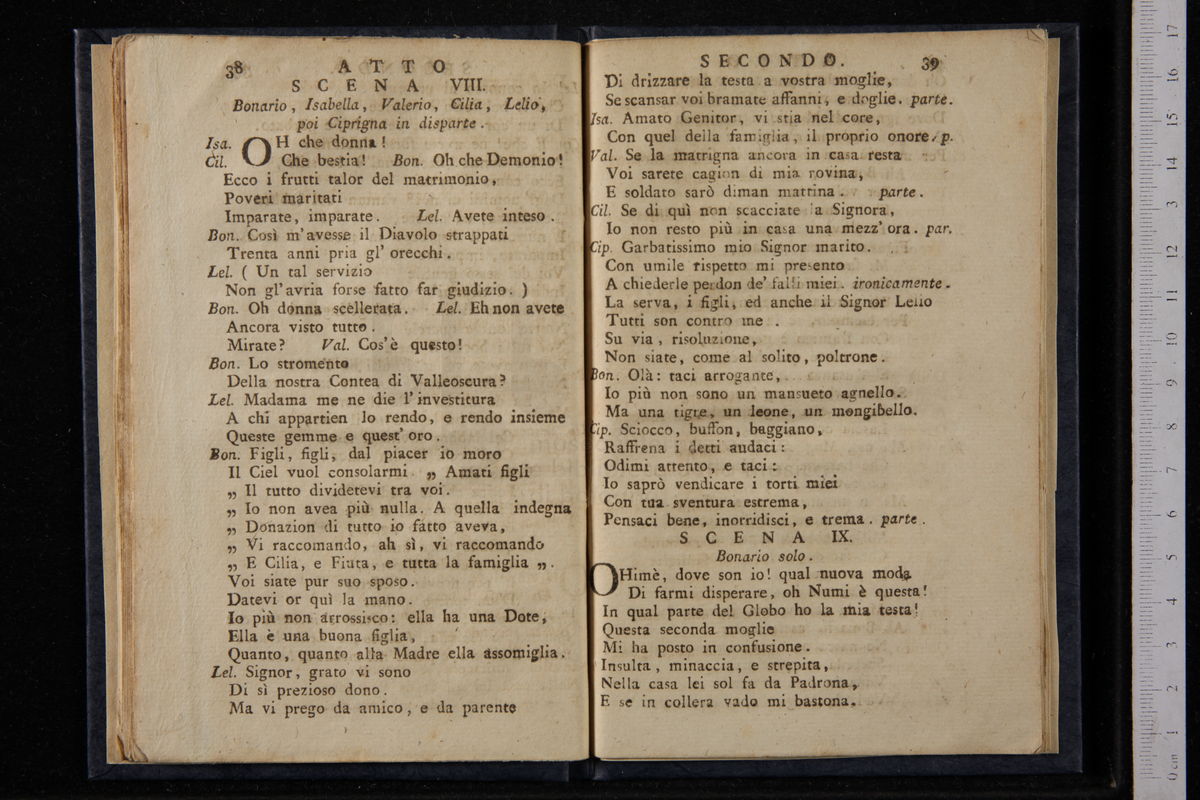 38 A T T O
S C E N A VIII.
Bonario, Isabella, Valerio, Cilia, Lelio,
poi Ciprigna in disparte.
Isa. OH che donna!
Cil. Che bestia! Bon. Oh che Demonio!
Ecco i frutti talor del matrimonio,
Poveri maritati
Imparate, imparate. Lel. Avete inteso.
Bon. Così m'avesse il Diavolo strappati
Trenta anni pria gl' orecchi.
Lel. ( Un tal servizio
Non gl'avria forse fatto far giudizio. )
Bon. Oh donna scellerata. Lel. Eh non avete
Ancora visto tutto.
Mirate? Val. Cos'è questo!
Bon. Lo stromento
Della nostra Contea di Valleoscura?
Lel. Madama me ne die l'investitura
A chi appartien lo rendo, e rendo insieme
Queste gemme e quest' oro.
Bon. Figli, figli, dal piacer io moro
Il Ciel vuol consolarmi. „ Amati figli
„ Il tutto dividetevi tra voi.
„ Io non avea più nulla. A quella indegna
„ Donazion di tutto io fatto aveva,
„ Vi raccomando, ah sì, vi raccomando
„ E Cilia, e Fiuta, e tutta la famiglia „.
Voi siate pur suo sposo.
Datevi or quì la mano.
Io più non arrossisco: ella ha una Dote,
Ella è una buona figlia,
Quanto, quanto alla Madre ella assomiglia.
Lel. Signor, grato vi sono
Di sì prezioso dono.
Ma vi prego da amico, e da parente
S E C O N D O. 39
Di drizzare la testa a vostra moglie,
Se scansar voi bramate affanni, e doglie. parte.
Isa. Amato Genitor, vi stia nel core,
Con quel della famiglia, il proprio onore. p.
Val. Se la matrigna ancora in casa resta
Voi sarete cagion di mia rovina,
E soldato sarò diman mattina. parte.
Cil. Se di quì non scacciate la Signora,
Io non resto più in casa una mezz' ora. par.
Cip. Garbatissimo mio Signor marito.
Con umile rispetto mi presento
A chiederle perdon de' falli miei. ironicamente.
La serva, i figli, ed anche il Signor Lelio
Tutti son contro me.
Su via, risoluzione,
Non siate, come al solito, poltrone.
Bon. Olà: taci arrogante,
Io più non sono un mansueto agnello.
Ma una tigre, un leone, un mongibello.
Cip. Sciocco, buffon, baggiano,
Raffrena i detti audaci:
Odimi attento, e taci:
Io saprò vendicare i torti miei
Con tua sventura estrema,
Pensaci bene, inorridisci, e trema. parte.
S C E N A IX.
Bonario solo.
OHimè, dove son io! qual nuova moda
Di farmi disperare, oh Numi è questa!
In qual parte del Globo ho la mia testa!
Questa seconda moglie
Mi ha posto in confusione.
Insulta, minaccia, e strepita,
Nella casa lei sol fa da Padrona,
E se in collera vado mi bastona.
0 cm 1 2 3 4 5 6 7 8 9 10 11 12 13 14 15 16 17